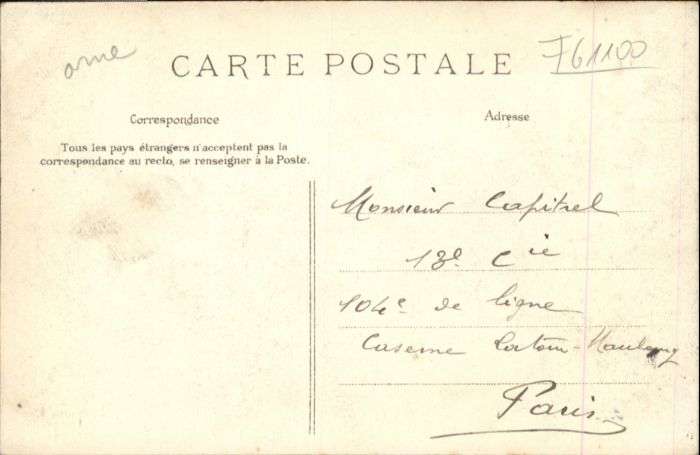 orne
F61100
CARTE POSTALE
Correspondance
Adresse
Tous les pays étrangers n'acceptent pas la
correspondance au recto, se renseigner à la Poste.
Monsieur Capitrel
13e Cie
104e de ligne
Caserne Latour-Maubourg
Paris